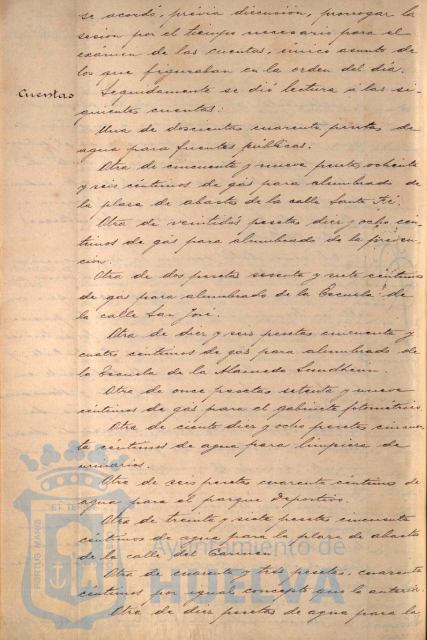 se acordó, prévia discusión, prorogar la
sesión por el tiempo necesario para el
exámen de las cuentas, único asunto de
los que figuraban en la orden del día.
Cuentas
Seguidamente se dió lectura á las si-
guientes cuentas:
Una de doscientas cuarenta pesetas de
agua para fuentes públicas.
Otra de cincuenta y nueve pesetas ochenta
y seis céntimos de gas para alumbrado de
la plaza de abastos de la calle Santa Fé.
Otra de veintidós pesetas diez y ocho cén-
timos de gas para alumbrado de la preven-
ción.
Otra de dos pesetas sesenta y siete céntimos
de gas para alumbrado de la Escuela de
la calle San José.
Otra de diez y seis pesetas cincuenta y
cuatro céntimos de gas para alumbrado de
la Escuela de la Alameda Sundheim.
Otra de once pesetas setenta y nueve
céntimos de gas para el gabinete fotométrico.
Otra de ciento diez y ocho pesetas cincuen-
ta céntimos de agua para limpieza de
urinarios.
Otra de seis pesetas cuarenta céntimos de
agua para el parque deportivo.
Otra de treinta y siete pesetas cincuenta
céntimos de agua para la plaza de abastos
de la calle del Carmen.
Otra de cuarenta y tres pesetas cuarenta
céntimos por igual concepto que la anterior.
Otra de diez pesetas de agua para la
Ayuntamiento de
HUELVA
PORTUS MARIS
ET TERRAE